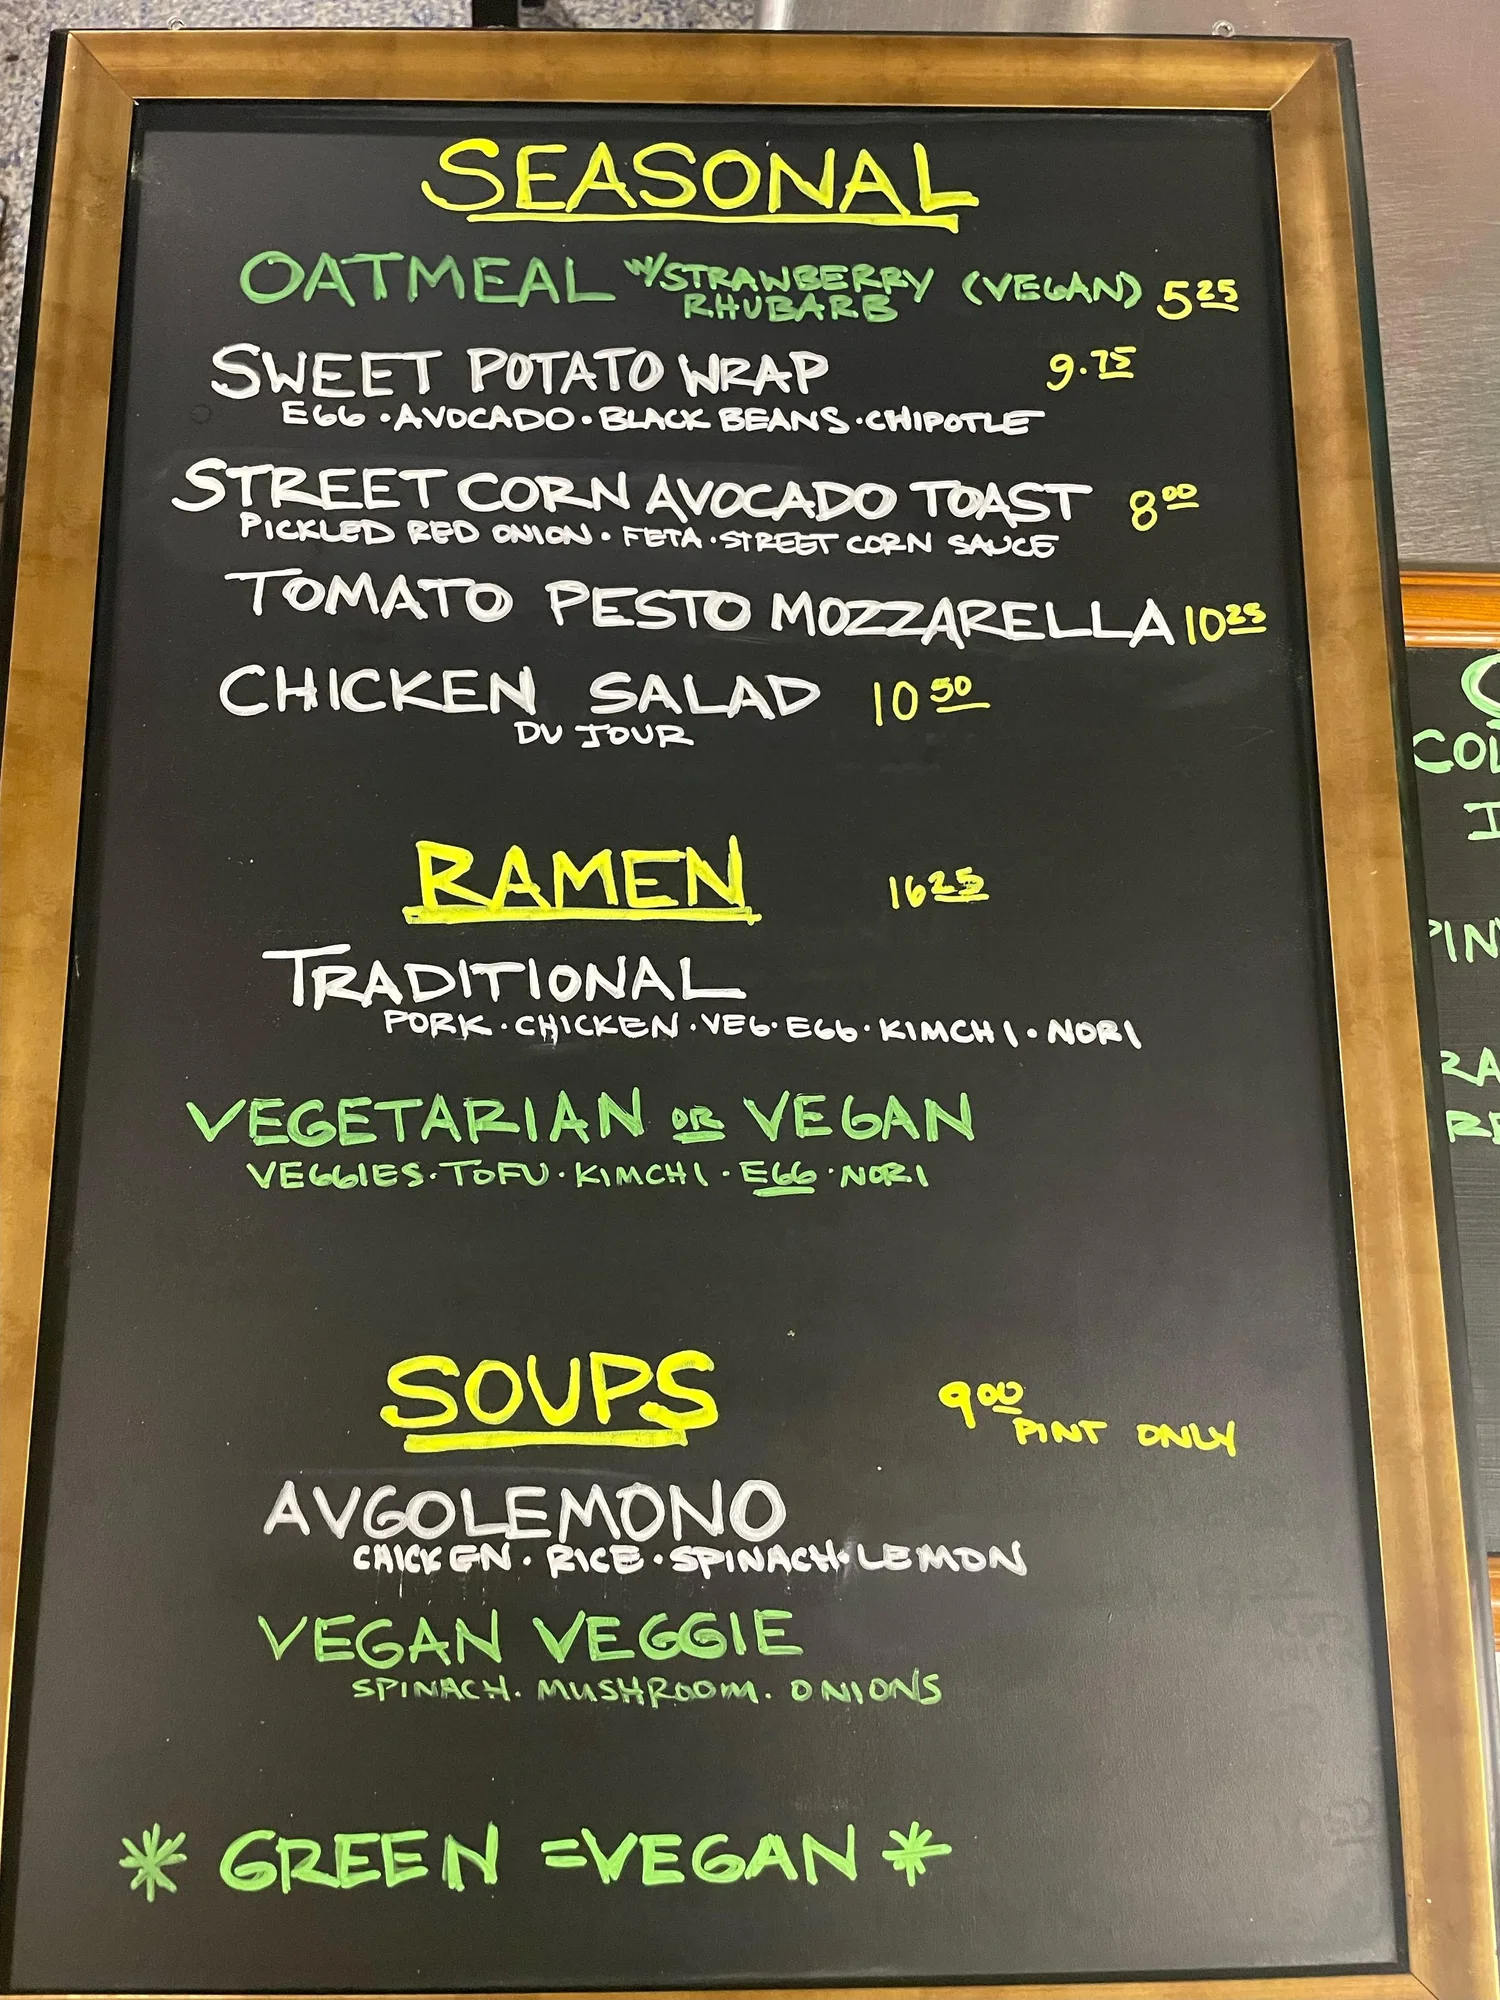 SEASONAL
OATMEAL W/STRAWBERRY RHUBARB (VEGAN) 5 25
SWEET POTATO WRAP 9.75
EGG • AVOCADO • BLACK BEANS • CHIPOTLE
STREET CORN AVOCADO TOAST 8 00
PICKLED RED ONION • FETA • STREET CORN SAUCE
TOMATO PESTO MOZZARELLA 10 25
CHICKEN SALAD 10 50
DU JOUR
RAMEN 16 25
TRADITIONAL
PORK • CHICKEN • VEG • EGG • KIMCHI • NORI
VEGETARIAN OR VEGAN
VEGGIES • TOFU • KIMCHI • EGG • NORI
SOUPS 9 00
PINT ONLY
AVGOLEMONO
CHICKEN • RICE • SPINACH • LEMON
VEGAN VEGGIE
SPINACH. MUSHROOM. ONIONS
* GREEN =VEGAN *